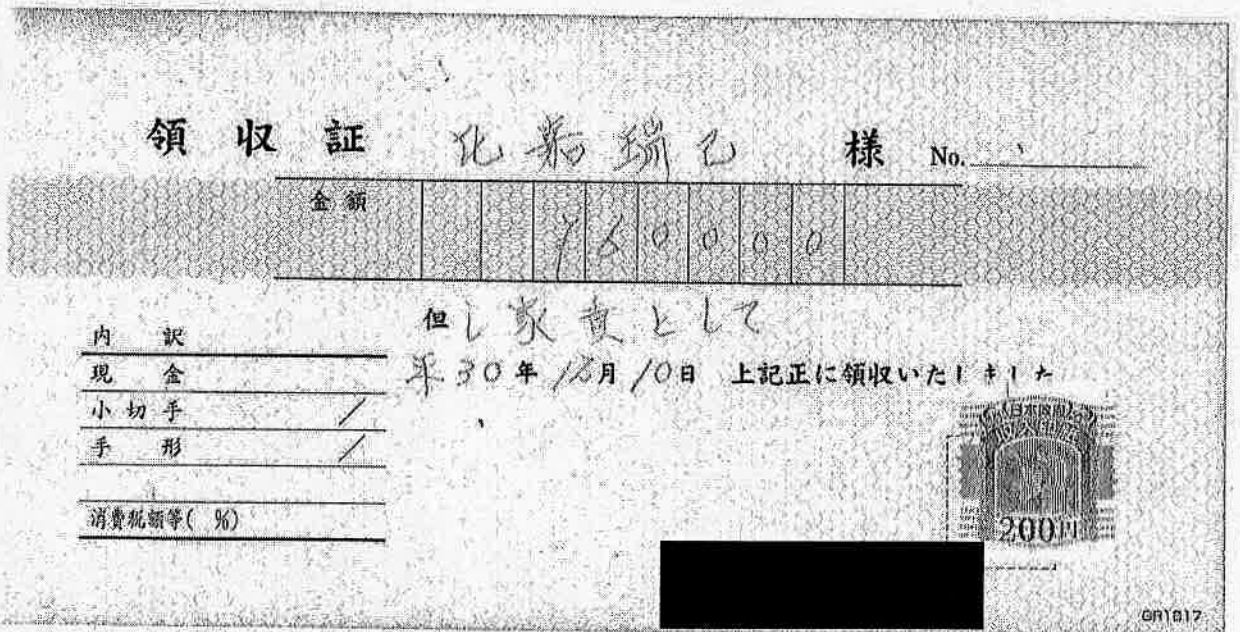 領収証 化 瑞己 様 No.
金額 760000
但し家賃として
平30年12月10日 上記正に領収いたしました
内訳
現金
小切手 /
手形 /
消費税額等( %)
日本政府
収入印紙
200円
GR1017